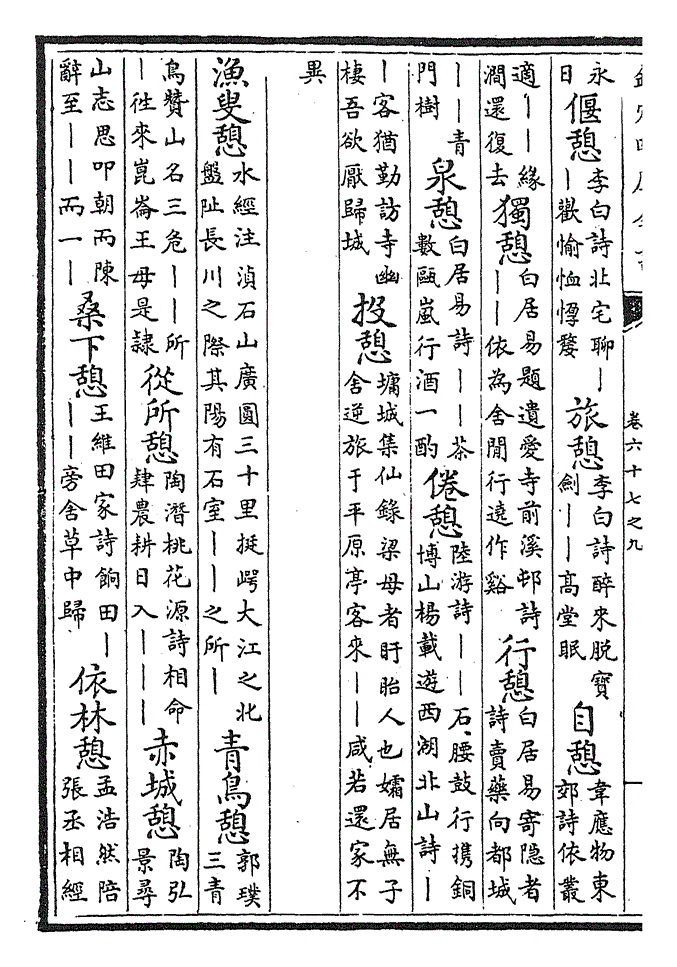 卷六十七之九
永日偃憩李白詩北宅聊丨丨歡愉恤惸嫠旅憩李白詩醉來脱寳劍丨丨高堂眠自憩韋應物東郊詩依叢
適丨丨緣澗還復去獨憩白居易題遺愛寺前溪邨詩丨丨依為舍閒行遶作谿行憩白居易寄隱者詩賣藥向都城
丨丨青門樹泉憩白居易詩丨丨茶數甌嵐行酒一酌倦憩陸游詩丨丨石腰鼓行携銅博山楊載遊西湖北山詩丨
丨客猶勤訪寺幽棲吾欲厭歸城投憩墉城集仙錄梁母者盱眙人也孀居無子舍逆旅于平原亭客來丨丨咸若還家不
異
漁叟憩水經注湞石山廣圓三十里挺崿大江之北盤阯長川之際其陽有石室丨丨之所丨青鳥憩郭璞三青
鳥贊山名三危丨丨所丨徃來崑崙王母是隷從所憩陶潛桃花源詩相命肆農耕日入丨丨丨赤城憩陶弘景尋
山志思叩朝而陳辭至丨丨而一丨桑下憩王維田家詩餉田丨丨丨旁舍草中歸依林憩孟浩然陪張丞相經